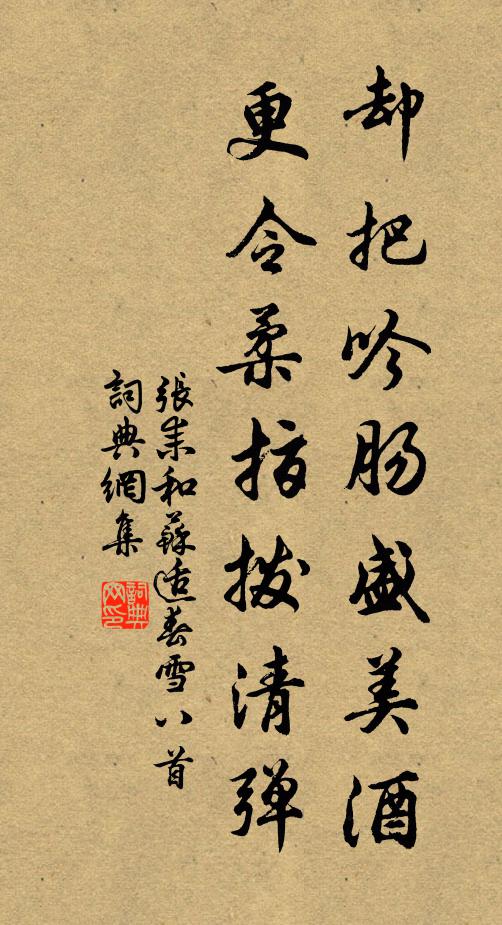 却把吟肠盛美酒
更令柔指拨清弹
張耒和蘇适春雪八首
詞典網集
詞典網印